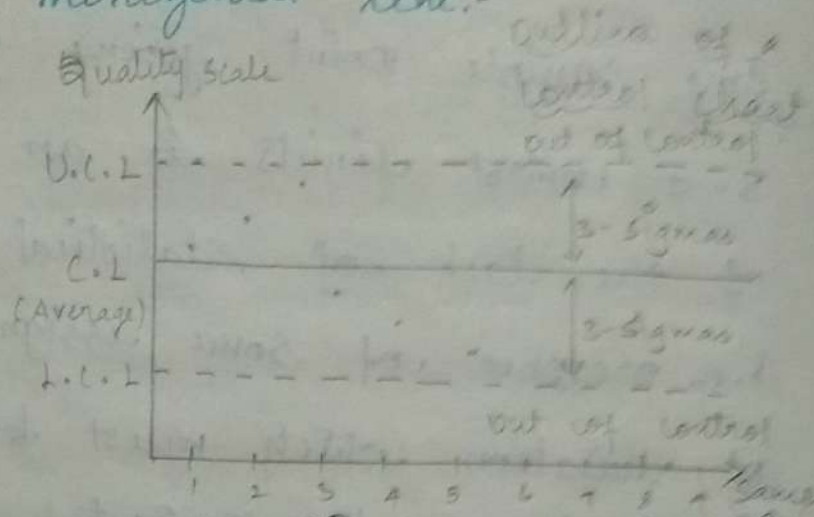 Quality scale
outline of a
control chart
out of control
U.C.L
3-Sigmas
C.L
(Average)
3-Sigmas
L.C.L
out of control
1 2 3 4 5 6 7 8